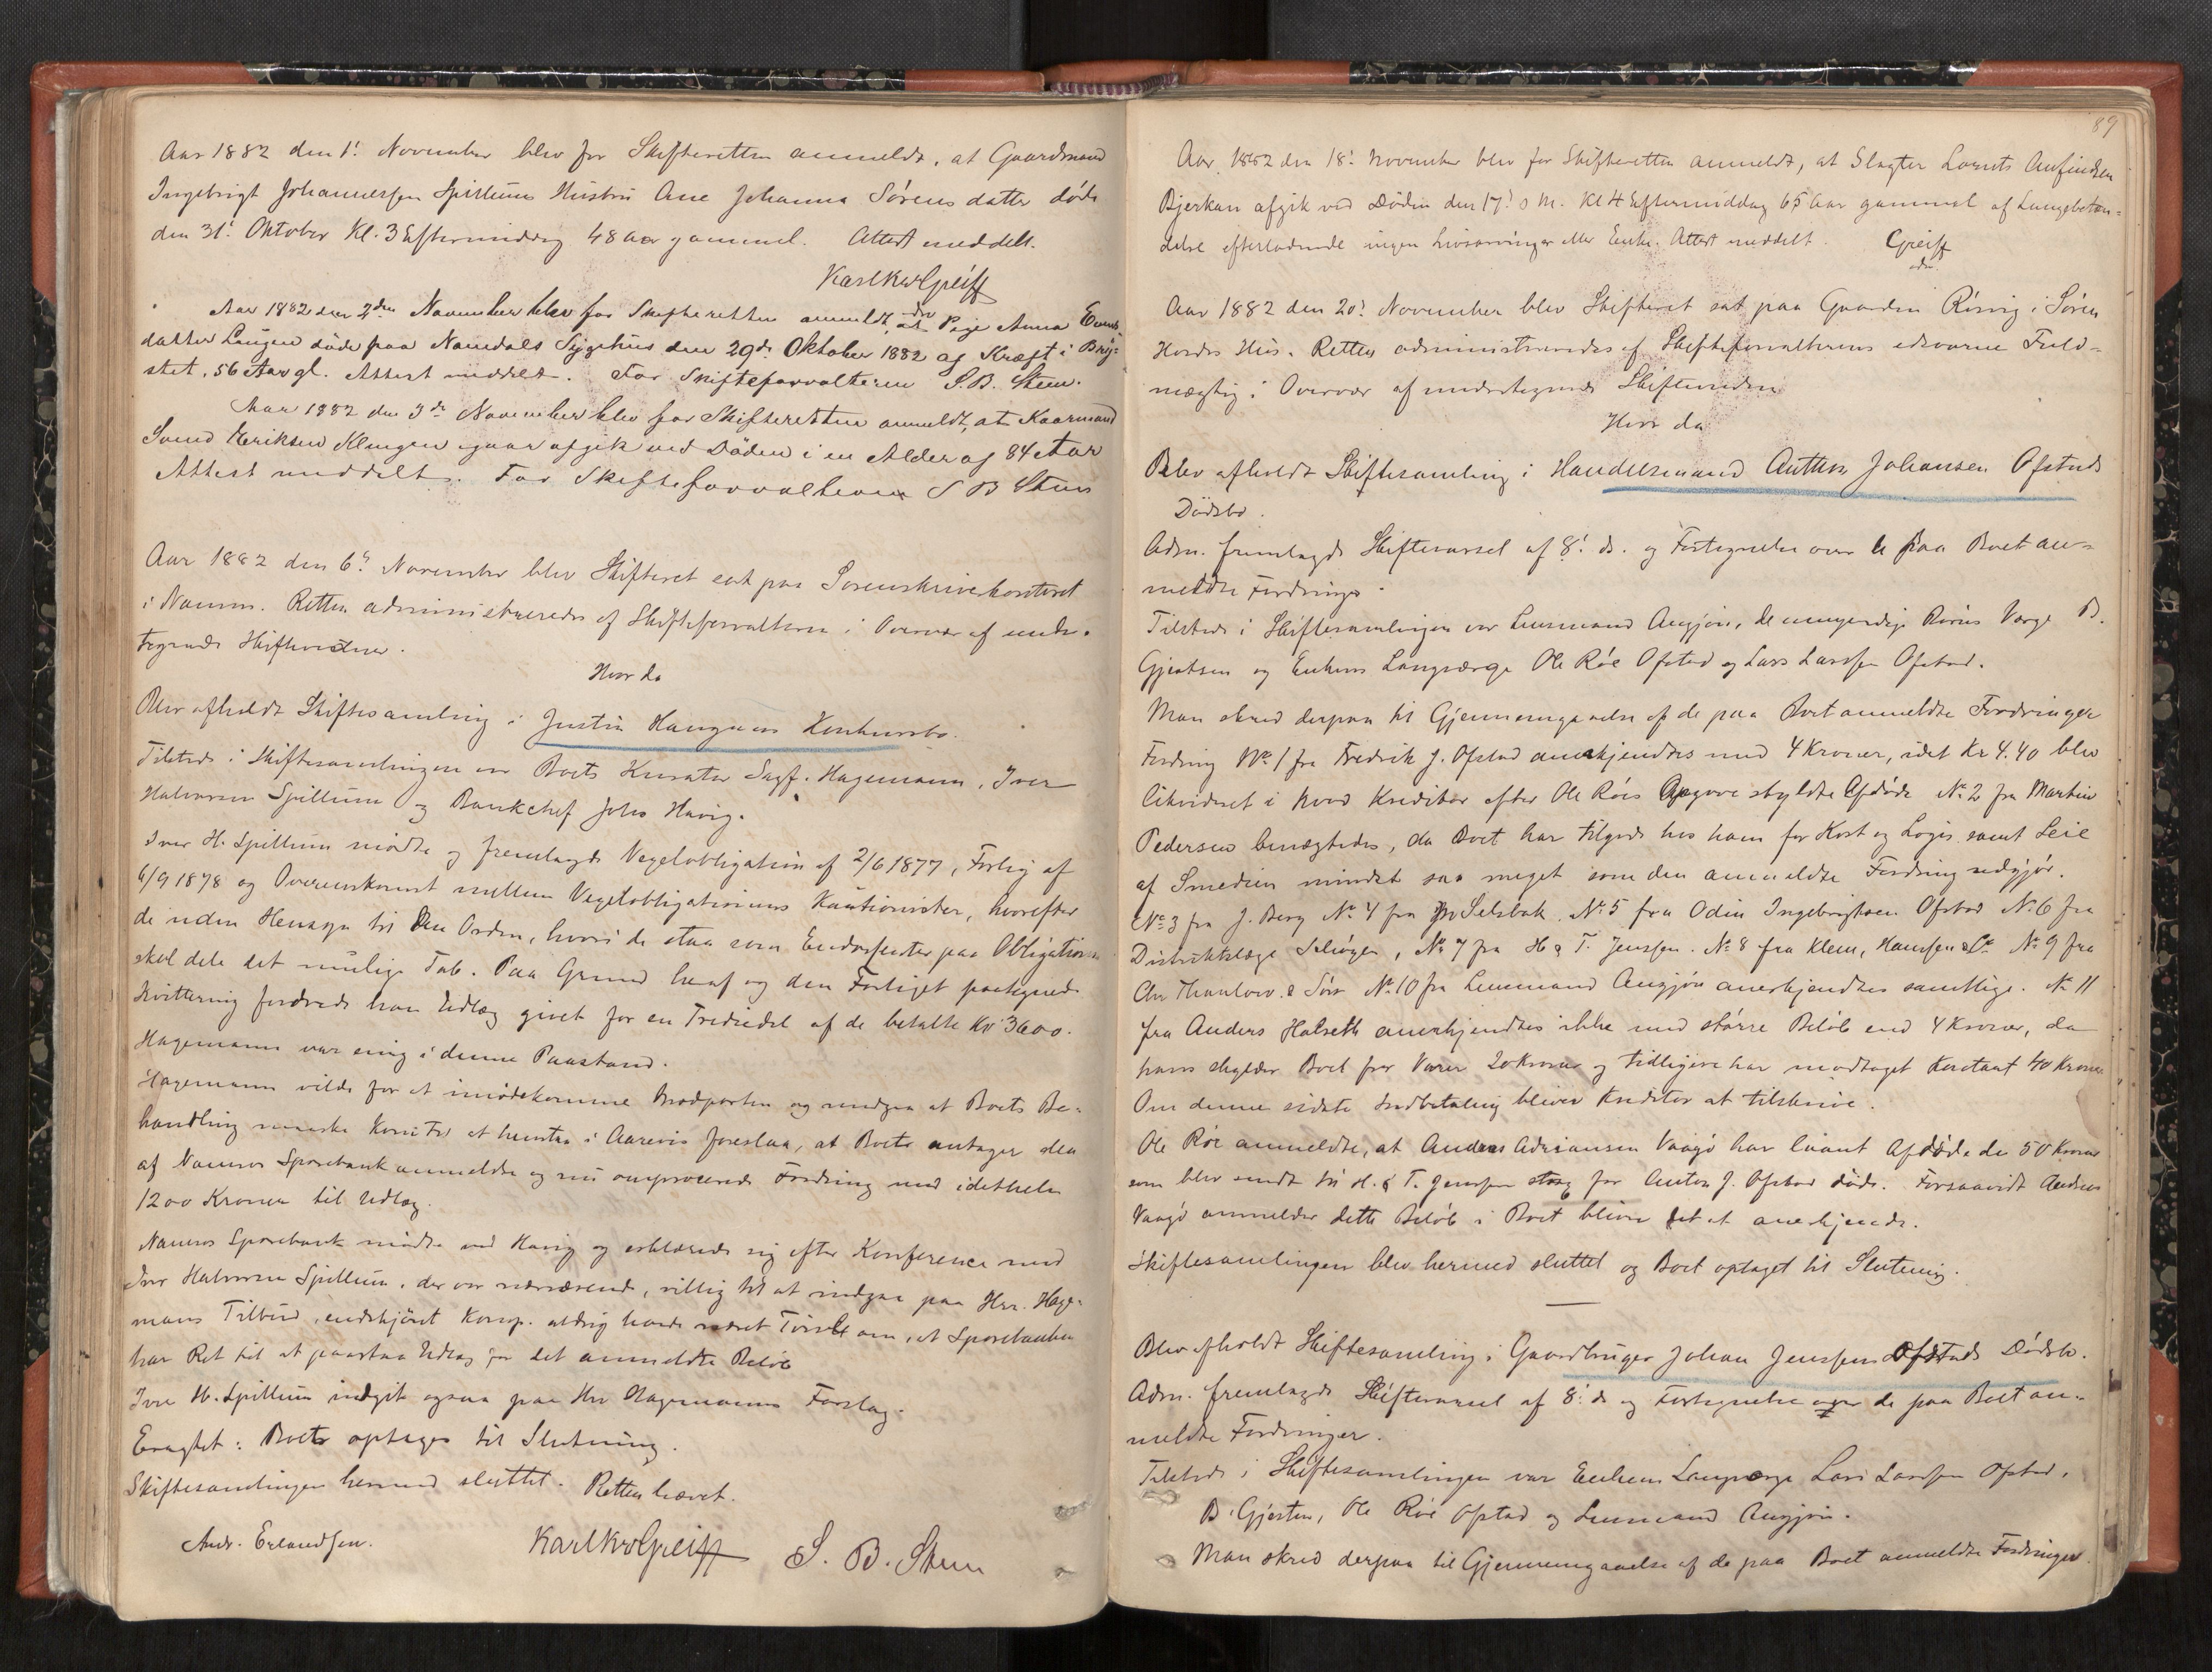 Aar 1882 den 1ste November blev for Skifteretten anmeldt, at Gaardmand
Ingebrigt Johannessen Spillums Hustru Ane Johanna Sørensdatter døde
den 31te Oktober Kl. 3 Eftermiddag 48 Aar gammel. Attest meddelt.
Karl Kr Greiff
Aar 1882 den 2den November blev for Skifteretten anmeldt, at Pige Anna
datter Laugen døde paa Namdals Sygehus den 29de Oktober 1882 af Kræft i Bry-
stet, 56 Aar gl. Attest meddelt. For Skifteforvalteren S. B. Steen.
Aar 1882 den 3de November blev for Skifteretten anmeldt, at Kaarmand
Svend Eriksen Klingen igaar afgik ved Døden i en Alder af 84 Aar
Attest meddelt. For Skifteforvalteren S B Steen
Aar 1882 den 6te November blev Skifteret sat paa Sorenskriverkontoret
i Namsos. Retten administreredes af Skifteforvalteren i Overvær af under-
tegnede Skiftevidner.
Hvor da
Blev afholdt Skiftesamling i Justin Haugans Konkursbo.
Tilstede i Skiftesamlingen var Boets Kurator Sagf. Hagemann, Iver
Halvorsen Spillum og Bankchef Johs Havig.
Iver H. Spillum mødte og fremlagde Vexelobligation af 2/6 1877, Forlig af
6/9 1878 og Overenskomst mellem Vexelobligationens Kautionister, hvorefter
de uden Hensyn til den Orden, hvori de staa som Endossenter paa Obligationen
skal dele det mulige Tab. Paa Grund heraf og den Forliget paategnede
Kvittering fordrede han Udlæg givet for en Trediedel af de betalte Kr 3600.
Hagemann var enig i denne Paastand.
Hagemann vilde for at imødekomme Modparten og undgaa at Boets Be-
handling maaske kom til at henstaa i Aarevis foreslaa, at Boets antager den
af Namsos Sparebank anmeldte og nu omprocerede Fordring med idethele
1200 Kroner til Udlæg.
Namsos Sparebank mødte ved Havig og erklærede sig efter Konference med
Iver Halvorsen Spillum, der var nærværende, villig til at indgaa paa Hrr. Hage-
manns Tilbud, endskjønt Komp. aldrig havde næret Tvivl om, at Sparebanken
har Ret til at paastaa Udlæg for det anmeldte Beløb
Iver H. Spillum indgik ogsaa paa Hr Hagemanns Forslag.
Eragtet: Boets optages til Slutning.
Skiftesamlingen hermed sluttet. Retten hævet.
Andr. Erlandsen. Karl Kr Greiff S. B. Steen
89
Aar 1882 den 18de November blev for Skifteretten anmeldt, at Slagter Lornts Anfindsen
Bjerkan afgik ved Døden den 17de d. M. Kl 4 Eftermiddag 65 Aar gammel af Lungebetæn-
delse efterladende ingen Livsarvinger eller Enke. Attest meddelt. Greiff
Aar 1882 den 20de November blev Skifteret sat paa Gaarden Rørvig i Søren
Hordes Hus. Retten administreredes af Skifteforvalterens edsvorne Fuld-
mægtig i Overvær af undertegnede Skiftevidner
Hvor da
Blev afholdt Skiftesamling i Handelsmand Anthon Johansen Ofstads
Dødsbo.
Adm. fremlagde Skiftevarsel af 8de ds. og Fortegnelse over de paa Boet an-
meldte Fordringer.
Tilstede i Skiftesamlingen var Lensmand Angjøn, de umyndige Børns Værge B.
Gjertsen og Enkens Laugværge Ole Røe Ofstad og Lars Larssen Ofstad.
Man skred derpaa til Gjennemgaaelse af de paa Boet anmeldte Fordringer
Fordring No 1 fra Fredrik J. Ofstad anerkjendtes med 4 Kroner, idet Kr 4.40 blev
likvideret i hvad Kreditor efter Ole Røes Opgave skyldte Afdøde. No 2 fra Martin
Pedersen benægtedes, da Boet har tilgode hos ham for Kost og Logis samt Leie
af Smedien mindst saa meget som den anmeldte Fordring udgjør.
No 3 fra J. Berg No 4 fra Selsbak. No 5 fra Odin Ingebrigtsen Ofstad No 6 fra
Distriktslæge Schøyen, No 7 fra H & T. Jenssen. No 8 fra Klem, Hanssen & Co No 9 fra
Chr Thaulow & Søn No 10 fra Lensmand Angjøn anerkjendtes samtlige. No 11
fra Anders Halseth anerkjendtes ikke med større Beløb end 4 Kroner, da
han skylder Boet for Varer 20 Kroner og tidligere har modtaget kontant 40 Kroner
Om denne sidste Indbetaling bliver Kreditor at tilskrive.
Ole Røe anmeldte, at Anders Adriansen Vaagø har laant Afdøde de 50 Kroner
som blev sendt til H. & T. Jenssen strax før Anton J. Ofstad døde. Forsaavidt Anders
Vaagø anmelder dette Beløb i Boet bliver det at anerkjende.
Skiftesamlingen blev hermed sluttet og Boet optaget til Slutning.
Blev afholdt Skiftesamling i Gaardbruger Johan Jenssen Ofstads Dødsbo.
Adm. fremlagde Skiftevarsel af 8de ds og Fortegnelse over de paa Boet an-
meldte Fordringer.
Tilstede i Skiftesamlingen var Enkens Laugværge Lars Larssen Ofstad,
B. Gjertsen, Ole Røe Ofstad og Lensmand Angjøn.
Man skred derpaa til Gjennemgaaelse af de paa Boet anmeldte Fordringer.